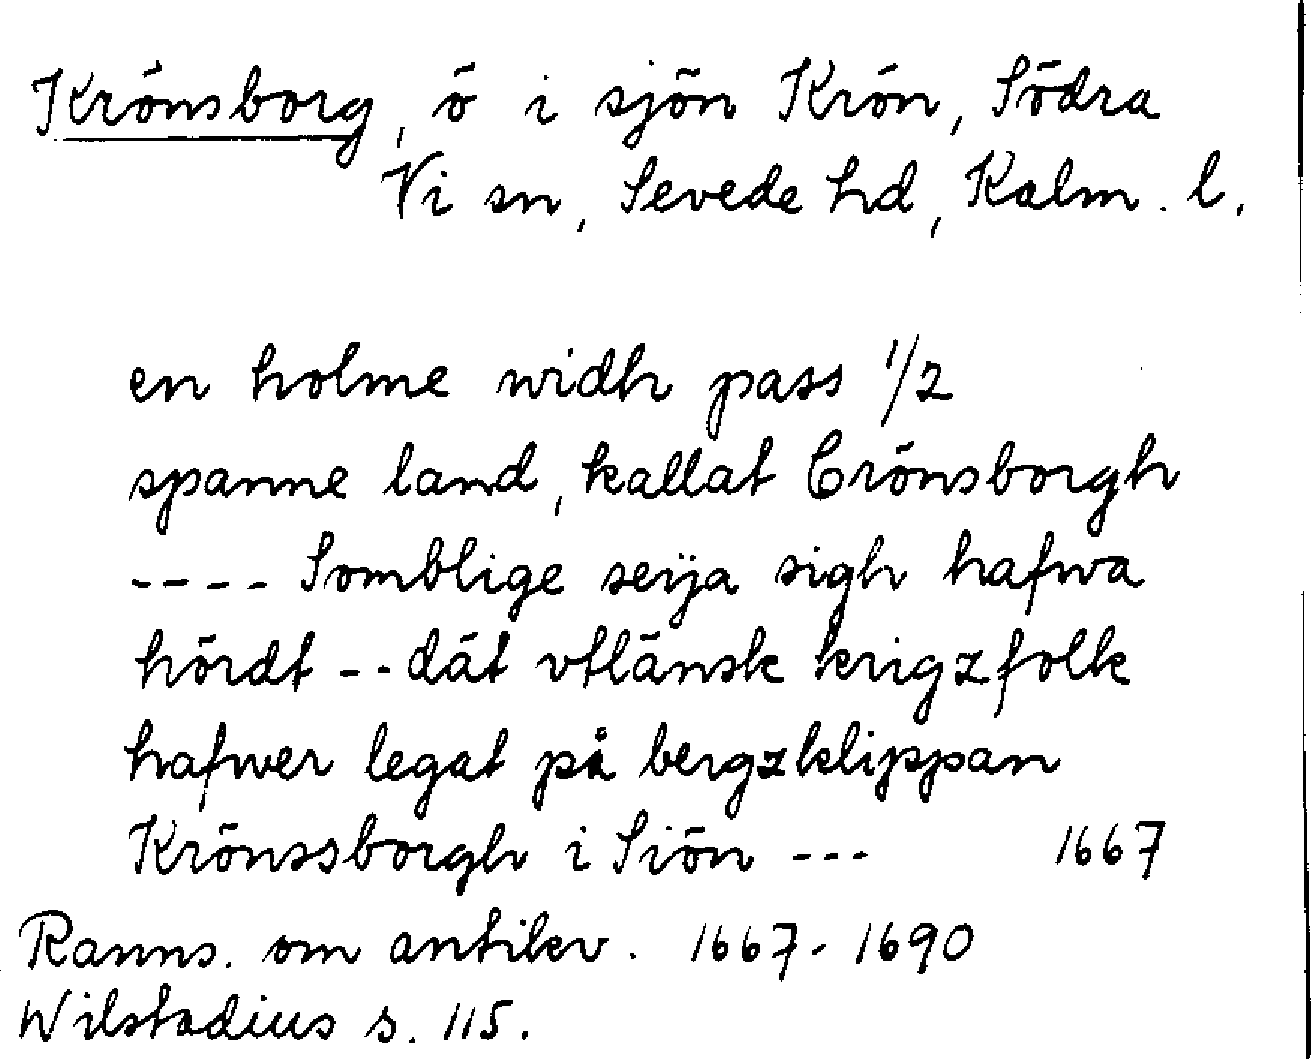 Krönsborg, ö i sjön Krön, Södra
Vi sn, Sevede hd, Kalm. l.
en holme widh pass 1/2
spanne land, kallat Crönsborgh
---- Somblige seÿa sigh hafwa
hördt -- dät vtlänsk krigzfolk
hafwer legat på bergzklippan
Krönssborgh i Siön --- 1667
Ranns. om antikv. 1667-1690
Wilstadius s. 115.